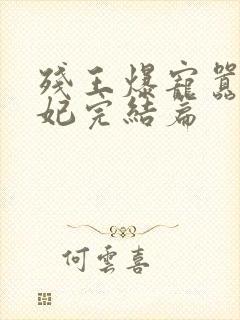 残王爆寵囂
妃完結篇
何雲喜